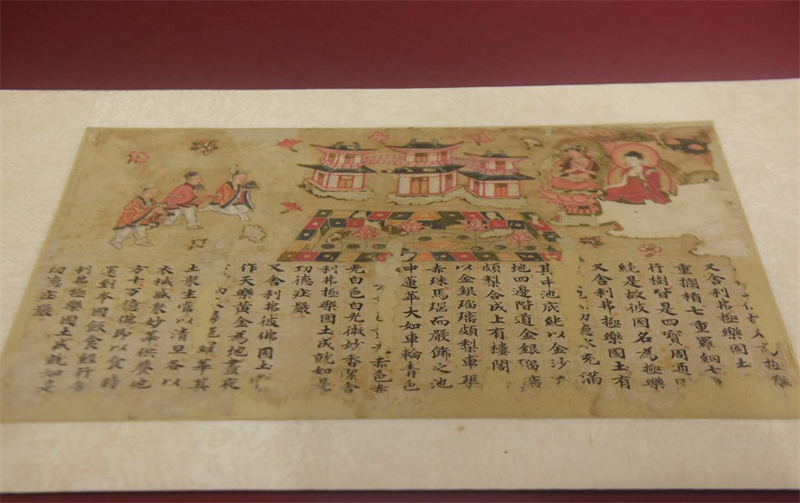 極樂
又舍利弗極樂國土
重欄楯七重羅網七
行樹皆是四寶周通
繞是故彼國名為極樂
又舍利弗極樂國土有
充滿
其中池底純以金沙
地四邊階道金銀瑠璃
頗梨合成上有樓閣
以金銀瑠璃頗梨車渠
赤珠馬瑙而嚴飾之池
中蓮華大如車輪青色
赤色赤
光白色白光微妙香潔舍
利弗極樂國土成就如是
功德莊嚴
又舍利弗彼佛國土
作天樂黃金為地晝夜
華其
土眾生常以清旦各以
衣裓盛眾妙華供養他
方十万億佛即以食時
還到本國飯食經行舍
利弗極樂國土成就如是
功德莊嚴